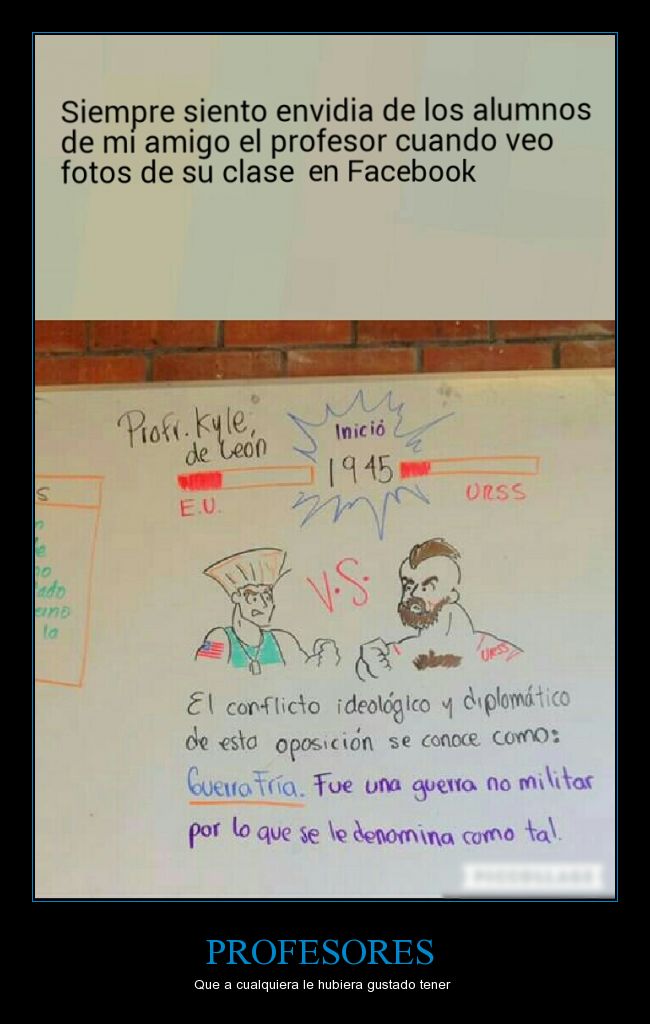 Siempre siento envidia de los alumnos
de mi amigo el profesor cuando veo
fotos de su clase en Facebook
Profr. Kyle,
de León
Inició
1945
E.U.
URSS
S
ado
la
V.S.
URSS
El conflicto ideológico y diplomático
de esta oposición se conoce como:
Guerra Fría. Fue una guerra no militar
por lo que se le denomina como tal.
PROFESORES
Que a cualquiera le hubiera gustado tener